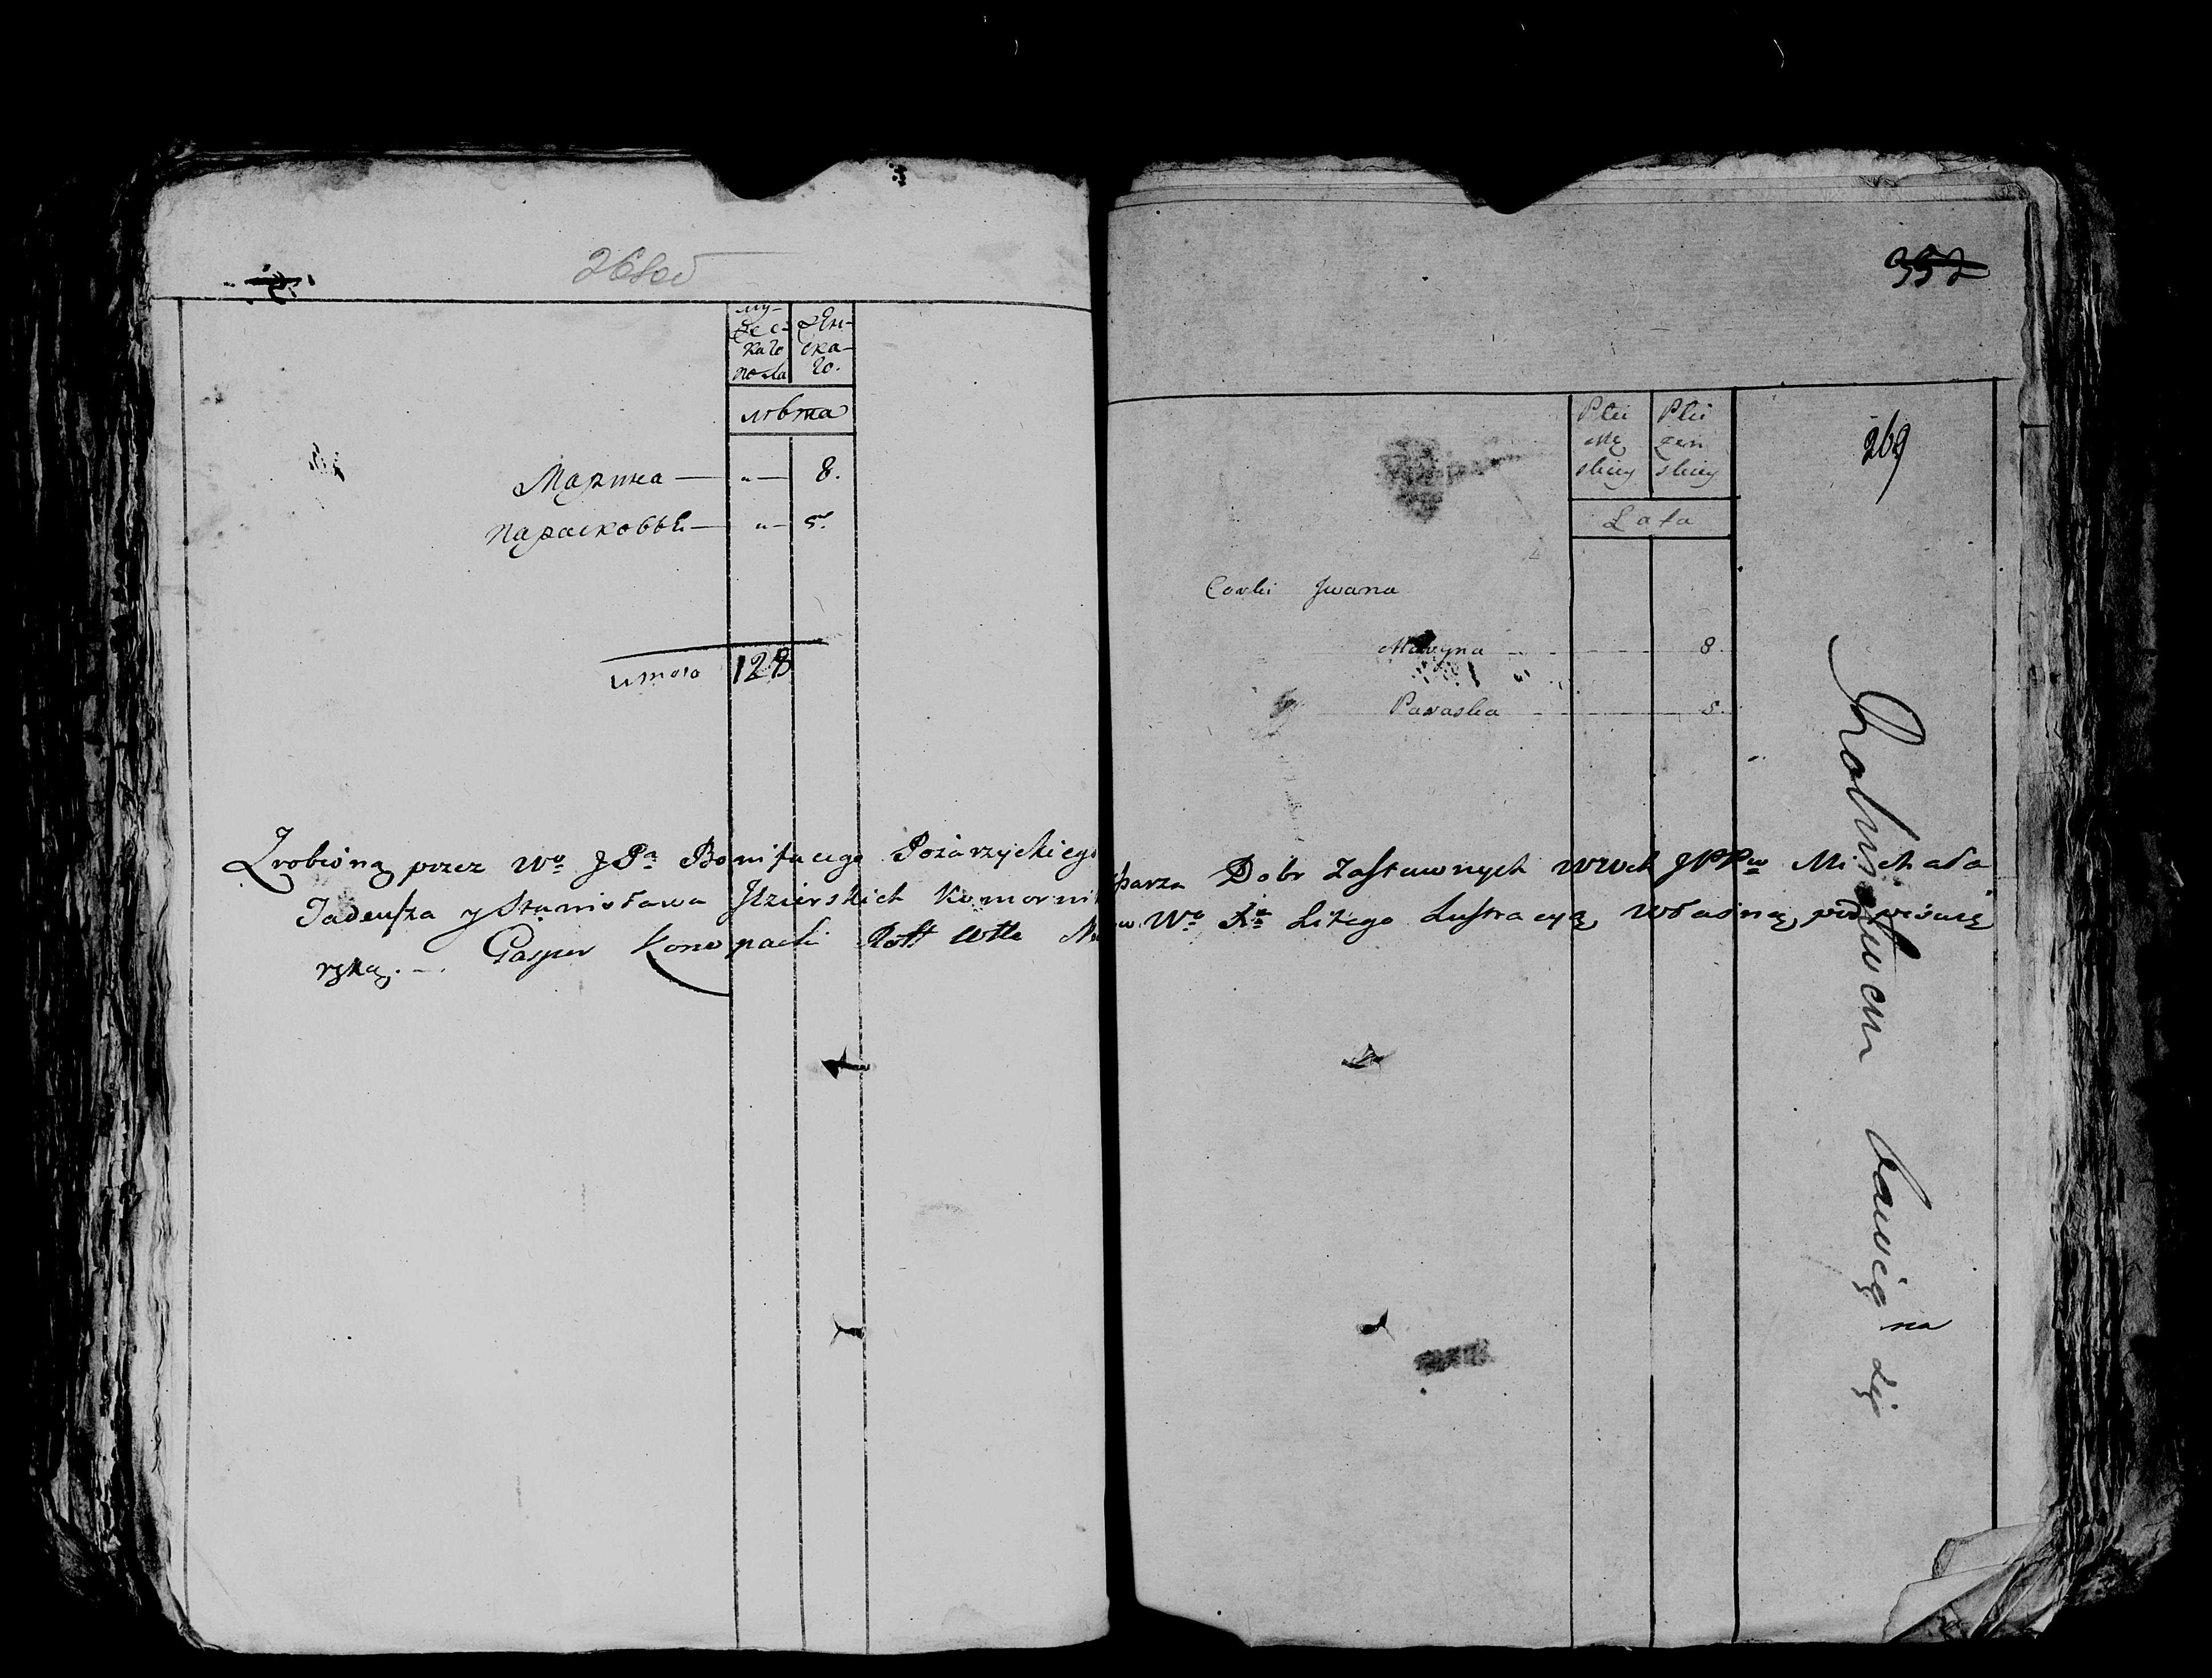 268об
му-
жес-
каго
пола
женс-
ска-
го.
лѣта
Марина — „— 8.
Парасковья — „— 5.
итого 128
357
269
Płci
Mę
skiey
Płci
żeń
skiey
Lata
Corki Jwana
Maryna 8.
Paraska 5.
Zrobioną przez Wo JPa Bonifacego Pożarzyckiego
parza Dobr Zastawnych WWch JPPw Michała
Tadeusza y Stanisława Jezierskich Komornik
w Wo Xa Litego Lustracyą, własną podpisuię
ręką. — Gasper Konopacki Rott Wtte
bawią
na